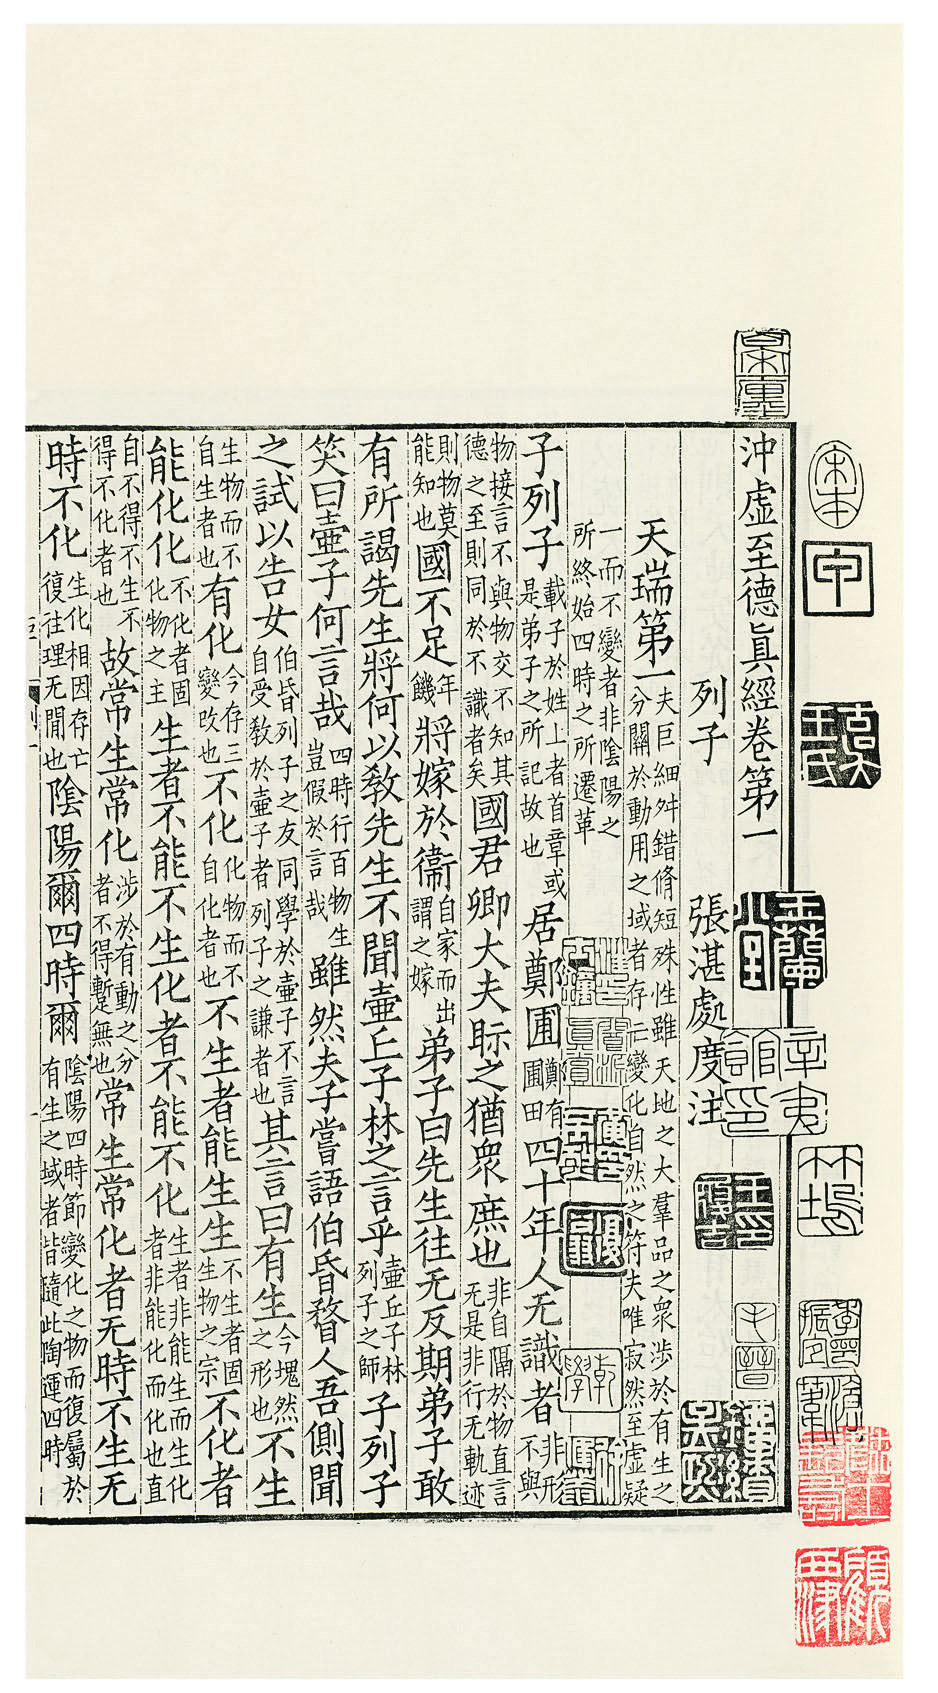 宋本
甲
沖虛至德眞經卷第一
列子 張湛處度注
天瑞第一 夫巨細舛錯脩短殊性雖天地之大羣品之衆涉於有生之 分關於動用之域者存亡變化自然之符夫唯寂然至虛凝
一而不變者非陰陽之 所終始四時之所遷革
子列子 載子於姓上者首章或 是弟子之所記故也 居鄭圃 鄭有 圃田 四十年人无識者 非形 不與
物接言不與物交不知其 德之至則同於不識者矣 國君卿大夫眎之猶衆庶也 非自隔於物直言 无是非行无軌迹
則物莫 能知也 國不足 年 饑 將嫁於衞 自家而出 謂之嫁 弟子曰先生往无反期弟子敢
有所謁先生將何以敎先生不聞壷丘子林之言乎 壷丘子林 列子之師 子列子
笑曰壷子何言哉 四時行百物生 豈假於言哉 雖然夫子嘗語伯昏瞀人吾側聞
之試以告女 伯昏列子之友同學於壷子不言 自受敎於壷子者列子之謙者也 其言曰有生 今塊然 之形也 不生
生物而不 自生者也 有化 今存三 變改也 不化 化物而不 自化者也 不生者能生生 不生者固 生物之宗 不化者
能化化 不化者固 化物之主 生者不能不生化者不能不化 生者非能生而生化 者非能化而化也直
自不得不生不 得不化者也 故常生常化 涉於有動之分 者不得蹔無也 常生常化者无時不生无
時不化 生化相因存亡 復往理无間也 陰陽爾四時爾 陰陽四時節變化之物而復屬於 有生之域者皆隨此陶運四時
子晉
乾學